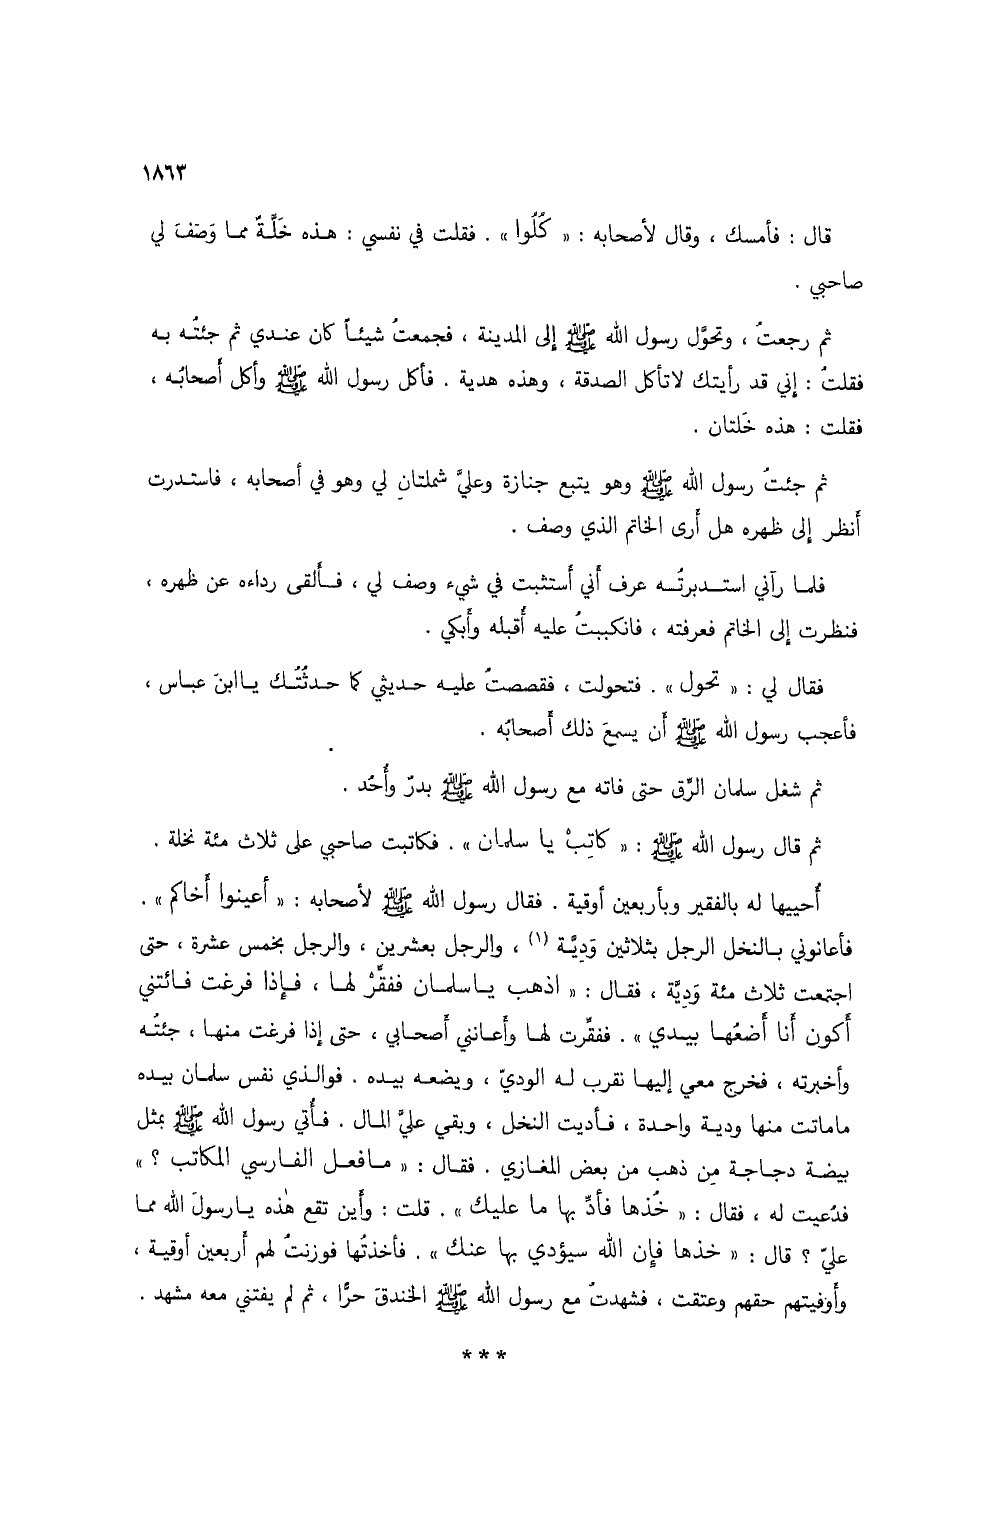 ١٨٦٣
قال : فأمسك ، وقال لأصحابه : « كُلُوا » . فقلت في نفسي : هذه خَلَّةٌ مما وَصَفَ لي
صاحبي .
ثم رجعتُ ، وتحوَّل رسول الله ﷺ إلى المدينة ، فجمعتُ شيئاً كان عندي ثم جئتُه به
فقلتُ : إني قد رأيتك لاتأكل الصدقة ، وهذه هدية . فأكل رسول الله ﷺ وأكل أصحابُه ،
فقلت : هذه خَلتان .
ثم جئتُ رسول الله ﷺ وهو يتبع جنازة وعليَّ شملتانِ لي وهو في أصحابه ، فاستدرت
أنظر إلى ظهره هل أرى الخاتم الذي وصف .
فلما رآني استدبرتُه عرف أني أستثبت في شيء وصف لي ، فألقى رداءه عن ظهره ،
فنظرت إلى الخاتم فعرفته ، فانكببتُ عليه أقبله وأبكي .
فقال لي : « تحول » . فتحولت ، فقصصتُ عليه حديثي كما حدثْتُك ياابنَ عباس ،
فأعجب رسول الله ﷺ أن يسمعَ ذلك أصحابُه .
ثم شغل سلمان الرِّق حتى فاته مع رسول الله ﷺ بدرٌ وأُحُد .
ثم قال رسول الله ﷺ : « كاتِبْ يا سلمان » . فكاتبت صاحبي على ثلاث مئة نخلة .
أُحييها له بالفقير وبأربعين أوقية . فقال رسول الله ﷺ لأصحابه : « أعينوا أخاكم » .
فأعانوني بالنخل الرجل بثلاثين وَدِيَّة (١) ، والرجل بعشرين ، والرجل بخمس عشرة ، حتى
اجتمعت ثلاث مئة وَدِيَّة ، فقال : « اذهب ياسلمان ففقِّرْ لها ، فإذا فرغت فائتني
أكون أنا أضعُها بيدي » . ففقَّرت لها وأعانني أصحابي ، حتى إذا فرغت منها ، جئتُه
وأخبرته ، فخرج معي إليها نقرب له الوديّ ، ويضعه بيده . فوالذي نفس سلمان بيده
ماماتت منها ودية واحدة ، فأديت النخل ، وبقي عليَّ المال . فأُتي رسول الله ﷺ بمثل
بيضة دجاجة مِن ذهب من بعض المغازي . فقال : « مافعل الفارسي المكاتب ؟ »
فدُعيت له ، فقال : « خُذها فأدِّ بها ما عليك » . قلت : وأين تقع هٰذه يارسولَ الله مما
عليّ ؟ قال : « خذها فإن الله سيؤدي بها عنك » . فأخذتُها فوزنتُ لهم أربعين أوقية ،
وأوفيتهم حقهم وعتقت ، فشهدتُ مع رسول الله ﷺ الخندقَ حرًّا ، ثم لم يفتني معه مشهد .
***